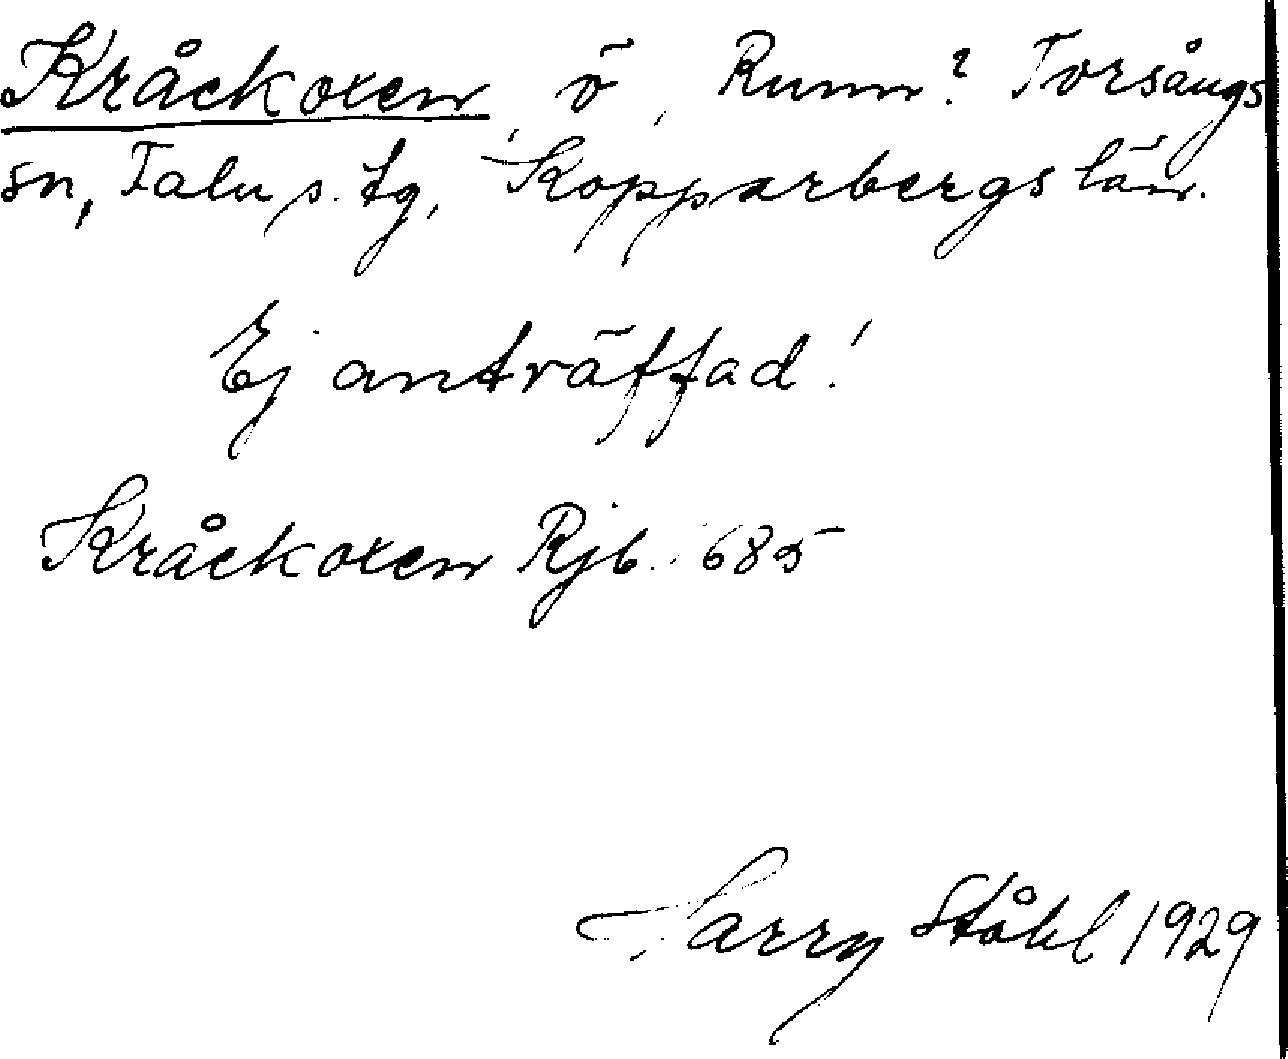 Kråckoxen ö, Runn? Torsångs
sn, Falu s. tg, Kopparbergs län.
Ej anträffad!
Kråckoxen Rjb. 685
Harry Ståhl 1929